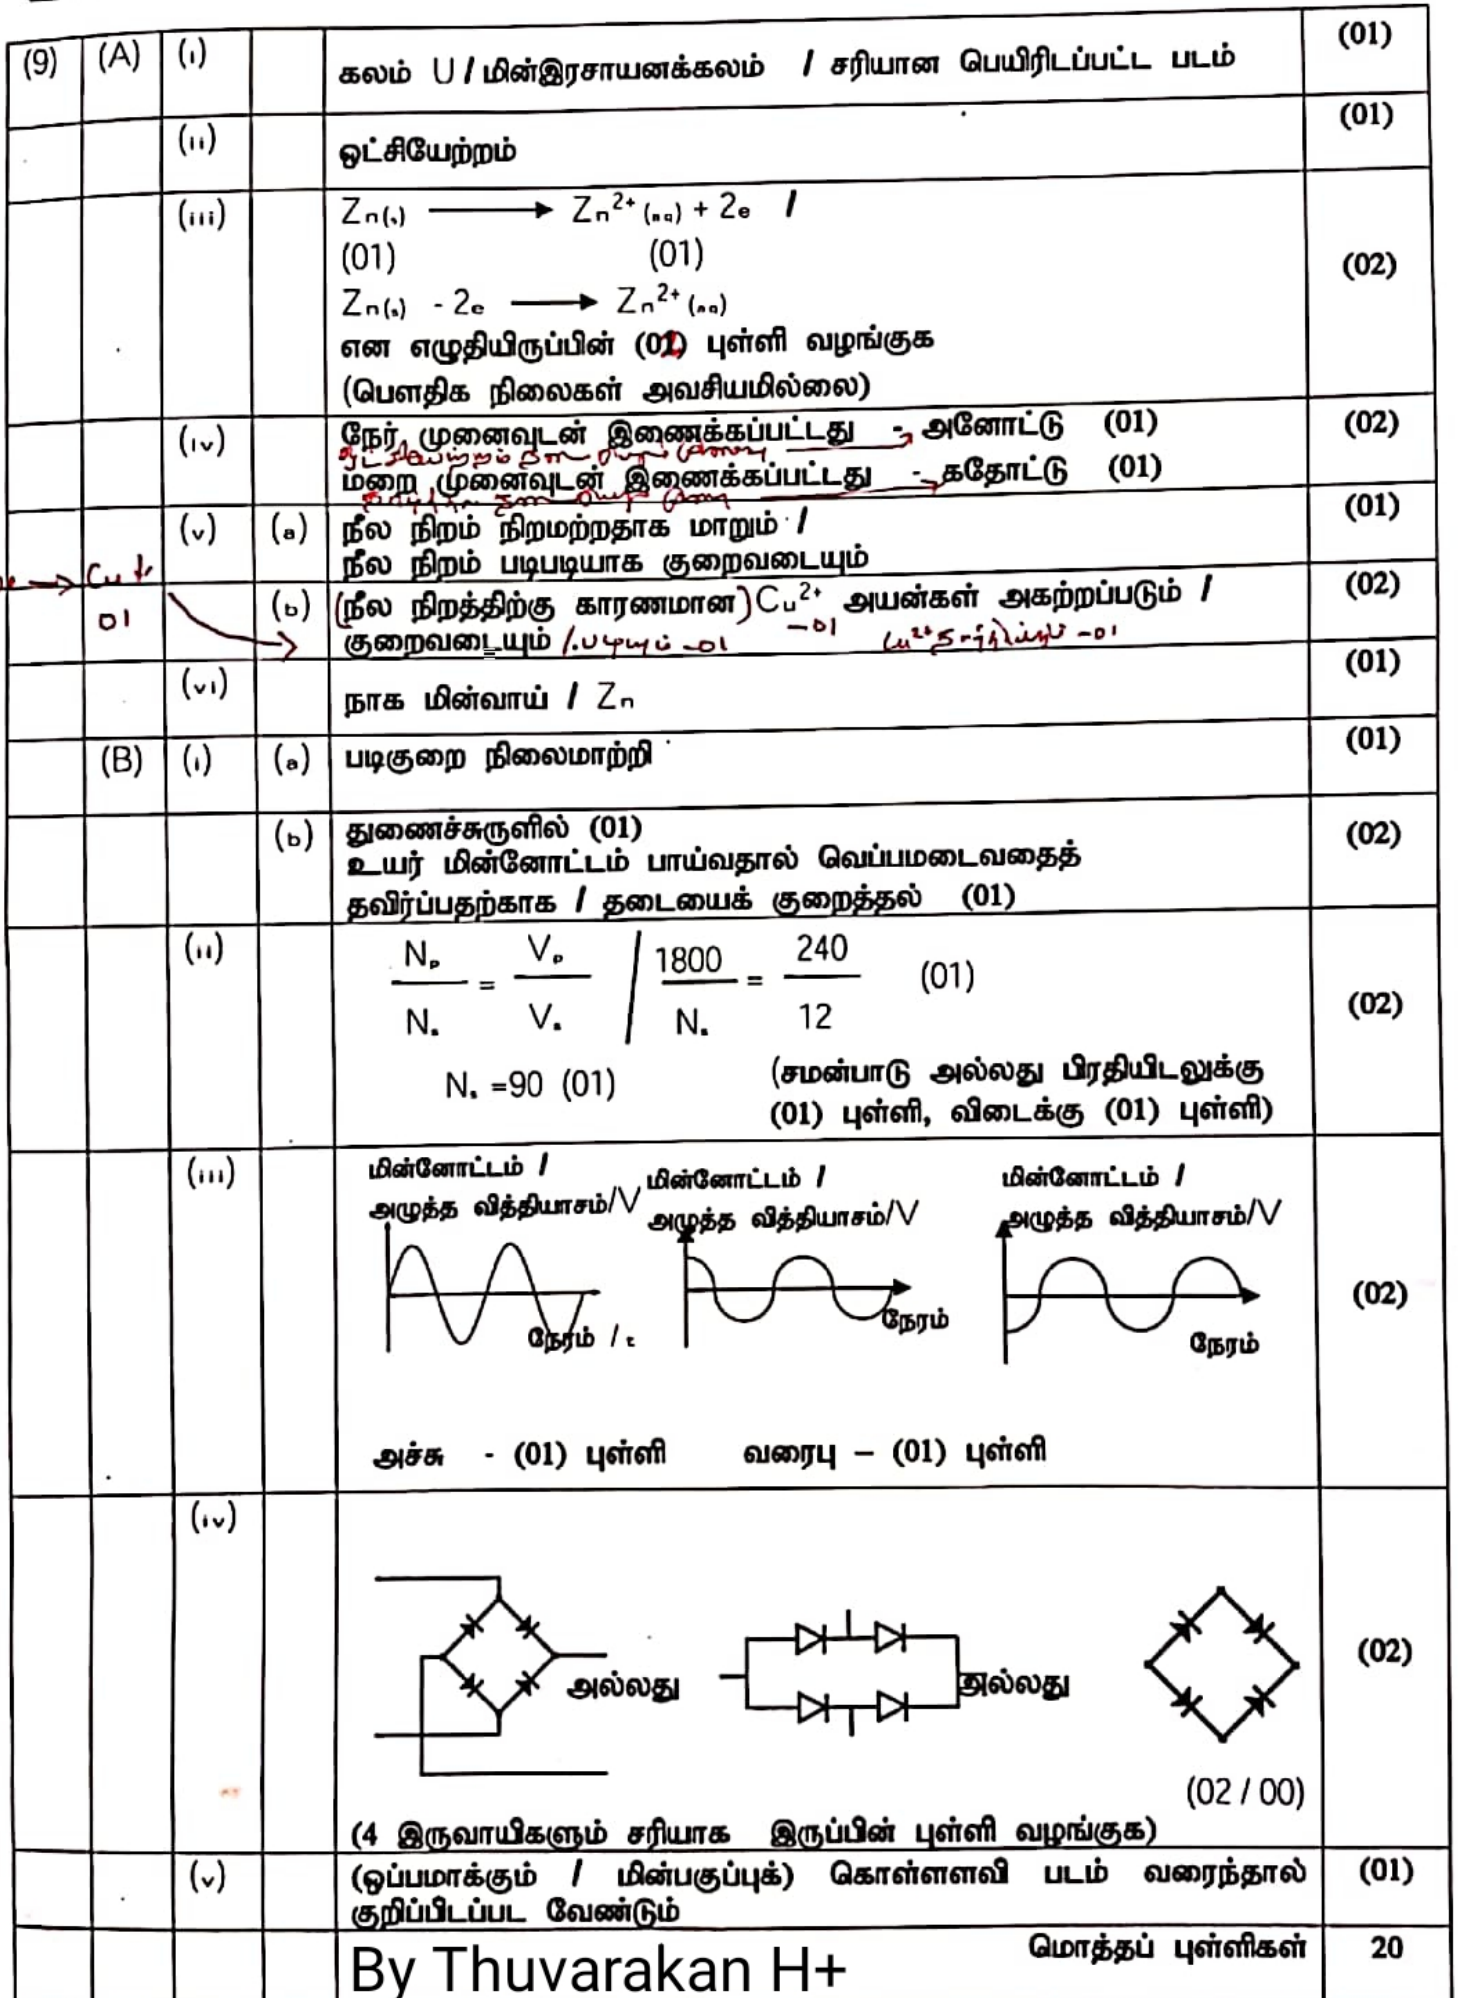 (9) (A) (i) கலம் U / மின்இரசாயனக்கலம் / சரியான பெயிரிடப்பட்ட படம் (01)
(ii) ஒட்சியேற்றம் (01)
(iii) Zn(s) ⟶ Zn²⁺(aq) + 2e /
(01) (01) (02)
Zn(s) - 2e ⟶ Zn²⁺(aq)
என எழுதியிருப்பின் (02) புள்ளி வழங்குக
(பௌதிக நிலைகள் அவசியமில்லை)
(iv) நேர் முனைவுடன் இணைக்கப்பட்டது - அனோட்டு (01) (02)
மறை முனைவுடன் இணைக்கப்பட்டது - கதோட்டு (01)
(v) (a) நீல நிறம் நிறமற்றதாக மாறும் / (01)
நீல நிறம் படிபடியாக குறைவடையும்
Cu
01
(b) (நீல நிறத்திற்கு காரணமான) Cu²⁺ அயன்கள் அகற்றப்படும் / (02)
-01
குறைவடையும் / -01 Cu²⁺ -01
(vi) நாக மின்வாய் / Zn (01)
(B) (i) (a) படிகுறை நிலைமாற்றி (01)
(b) துணைச்சுருளில் (01) (02)
உயர் மின்னோட்டம் பாய்வதால் வெப்பமடைவதைத்
தவிர்ப்பதற்காக / தடையைக் குறைத்தல் (01)
(ii) Np/Ns = Vp/Vs / 1800/Ns = 240/12 (01) (02)
Ns =90 (01) (சமன்பாடு அல்லது பிரதியிடலுக்கு
(01) புள்ளி, விடைக்கு (01) புள்ளி)
(iii) மின்னோட்டம் / மின்னோட்டம் / மின்னோட்டம் /
அழுத்த வித்தியாசம்/V அழுத்த வித்தியாசம்/V அழுத்த வித்தியாசம்/V
(02)
நேரம் / t நேரம் நேரம்
அச்சு - (01) புள்ளி வரைபு – (01) புள்ளி
(iv) அல்லது அல்லது (02)
(02 / 00)
(4 இருவாயிகளும் சரியாக இருப்பின் புள்ளி வழங்குக)
(v) (ஒப்பமாக்கும் / மின்பகுப்புக்) கொள்ளளவி படம் வரைந்தால் (01)
குறிப்பிடப்பட வேண்டும்
மொத்தப் புள்ளிகள் 20
By Thuvarakan H+